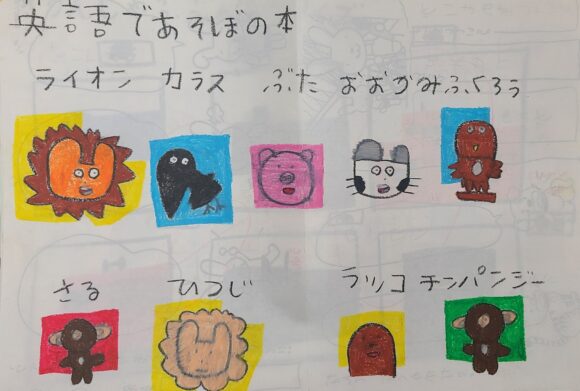 英語であそぼの本
ライオン カラス ぶた おおかみ ふくろう
さる ひつじ ラッコ チンパンジー